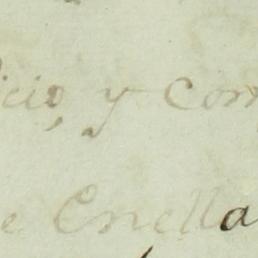 icio, y com
e Enella